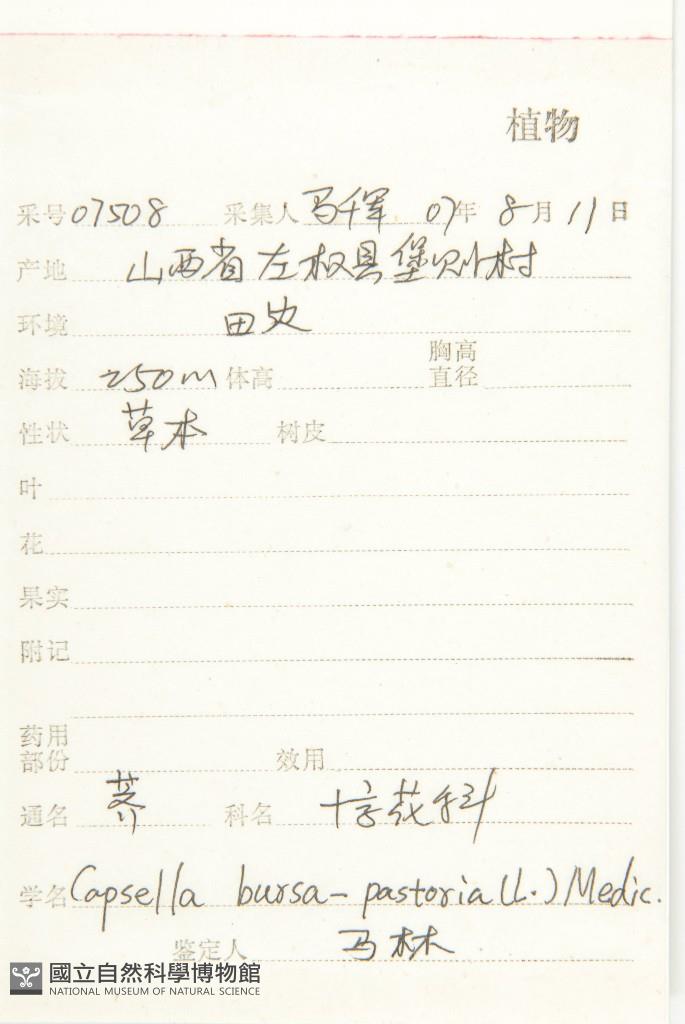 植物
采号 07508 采集人 马千军 07年 8月11日
产地 山西省左权县堡则村
环境 田边
胸高
海拔 250m 体高 直径
性状 草本 树皮
叶
花
果实
附记
药用
部份 效用
通名 荠 科名 十字花科
学名 Capsella bursa-pastoria (L.) Medic.
鉴定人 马林
國立自然科學博物館
NATIONAL MUSEUM OF NATURAL SCIENCE